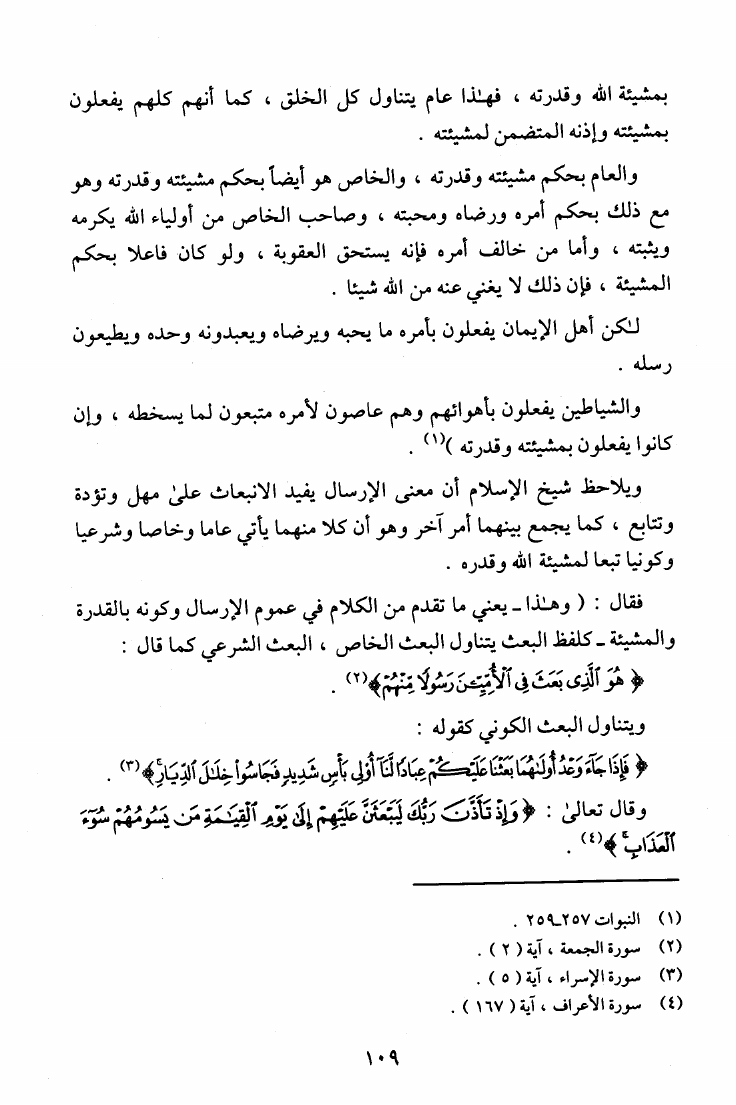 بمشيئة الله وقدرته ، فهـٰذا عام يتناول كل الخلق ، كما أنهم كلهم يفعلون
بمشيئته وإذنه المتضمن لمشيئته .
والعام بحكم مشيئته وقدرته ، والخاص هو أيضاً بحكم مشيئته وقدرته وهو
مع ذلك بحكم أمره ورضاه ومحبته ، وصاحب الخاص من أولياء الله يكرمه
ويثبته ، وأما من خالف أمره فإنه يستحق العقوبة ، ولو كان فاعلا بحكم
المشيئة ، فإن ذلك لا يغني عنه من الله شيئا .
لـٰكن أهل الإيمان يفعلون بأمره ما يحبه ويرضاه ويعبدونه وحده ويطيعون
رسله .
والشياطين يفعلون بأهوائهم وهم عاصون لأمره متبعون لما يسخطه ، وإن
كانوا يفعلون بمشيئته وقدرته )(١) .
ويلاحظ شيخ الإسلام أن معنى الإرسال يفيد الانبعاث علىٰ مهل وتؤدة
وتتابع ، كما يجمع بينهما أمر آخر وهو أن كلا منهما يأتي عاما وخاصا وشرعيا
وكونيا تبعا لمشيئة الله وقدره .
فقال : ( وهـٰذا ـ يعني ما تقدم من الكلام في عموم الإرسال وكونه بالقدرة
والمشيئة ـ كلفظ البعث يتناول البعث الخاص ، البعث الشرعي كما قال :
﴿ هُوَ ٱلَّذِى بَعَثَ فِى ٱلْأُمِّيِّـۧنَ رَسُولًا مِّنْهُمْ ﴾(٢) .
ويتناول البعث الكوني كقوله :
﴿ فَإِذَا جَآءَ وَعْدُ أُولَىٰهُمَا بَعَثْنَا عَلَيْكُمْ عِبَادًا لَّنَآ أُوْلِى بَأْسٍ شَدِيدٍ فَجَاسُوا۟ خِلَـٰلَ ٱلدِّيَارِ ۚ ﴾(٣) .
وقال تعالىٰ : ﴿ وَإِذْ تَأَذَّنَ رَبُّكَ لَيَبْعَثَنَّ عَلَيْهِمْ إِلَىٰ يَوْمِ ٱلْقِيَـٰمَةِ مَن يَسُومُهُمْ سُوٓءَ
ٱلْعَذَابِ ۗ ﴾(٤) .
(١) النبوات ٢٥٧ـ٢٥٩ .
(٢) سورة الجمعة ، آية ( ٢ ) .
(٣) سورة الإسراء ، آية ( ٥ ) .
(٤) سورة الأعراف ، آية ( ١٦٧ ) .
١٠٩